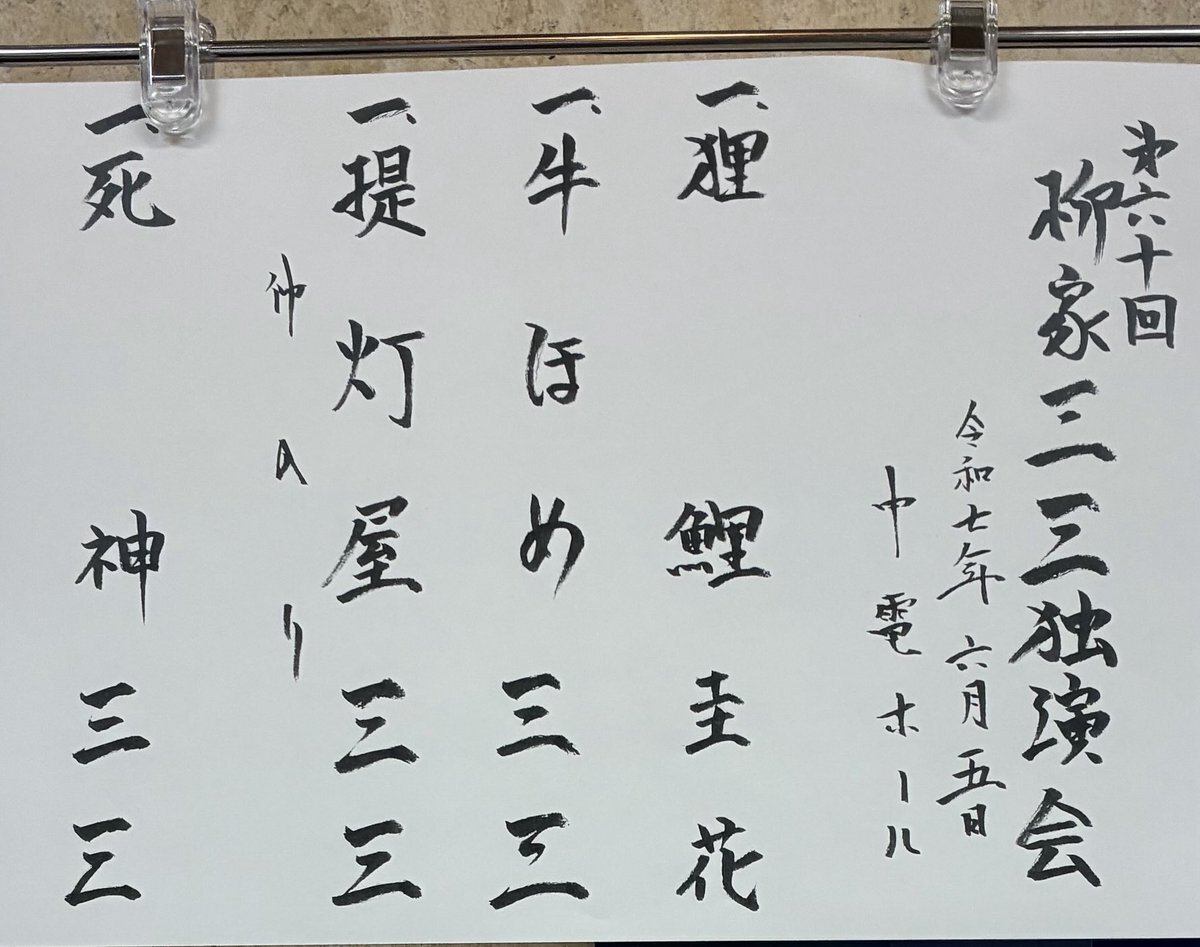 第六十回
柳家三三独演会
令和七年六月五日
中電ホール
一、狸 鯉圭花
一、牛ほめ 三三
一、提灯屋 三三
仲入り
一、死神 三三